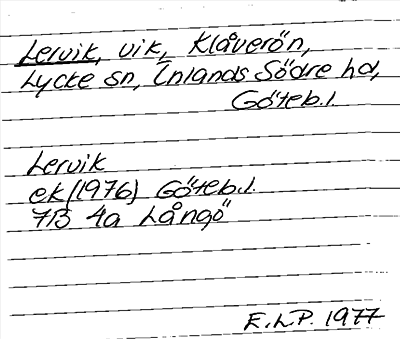 Lervik, vik, Klåverön,
Lycke sn, Inlands Södre hd,
Göteb.l.
Lervik
ek (1976) Göteb.l.
7B 4a Långö
E.L.P. 1977